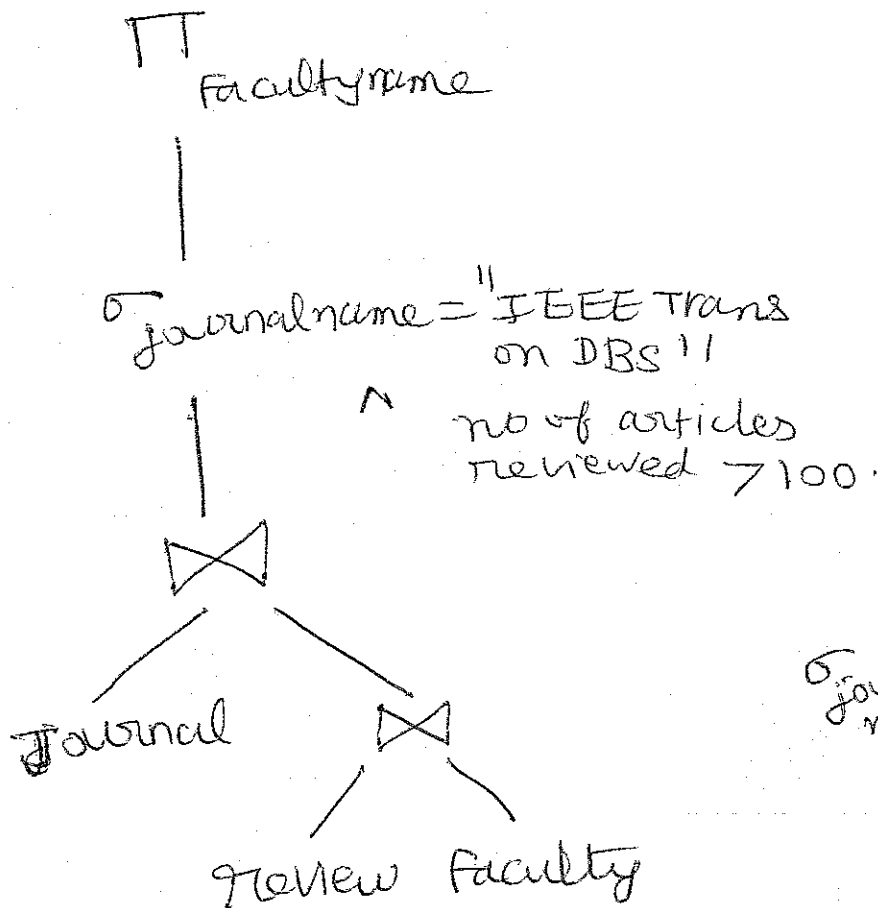 Π
Facultyname
σ journalname = "IEEE Trans
on DBS"
∧ no of articles
reviewed >100.
⋈
Journal ⋈
σ
review Faculty